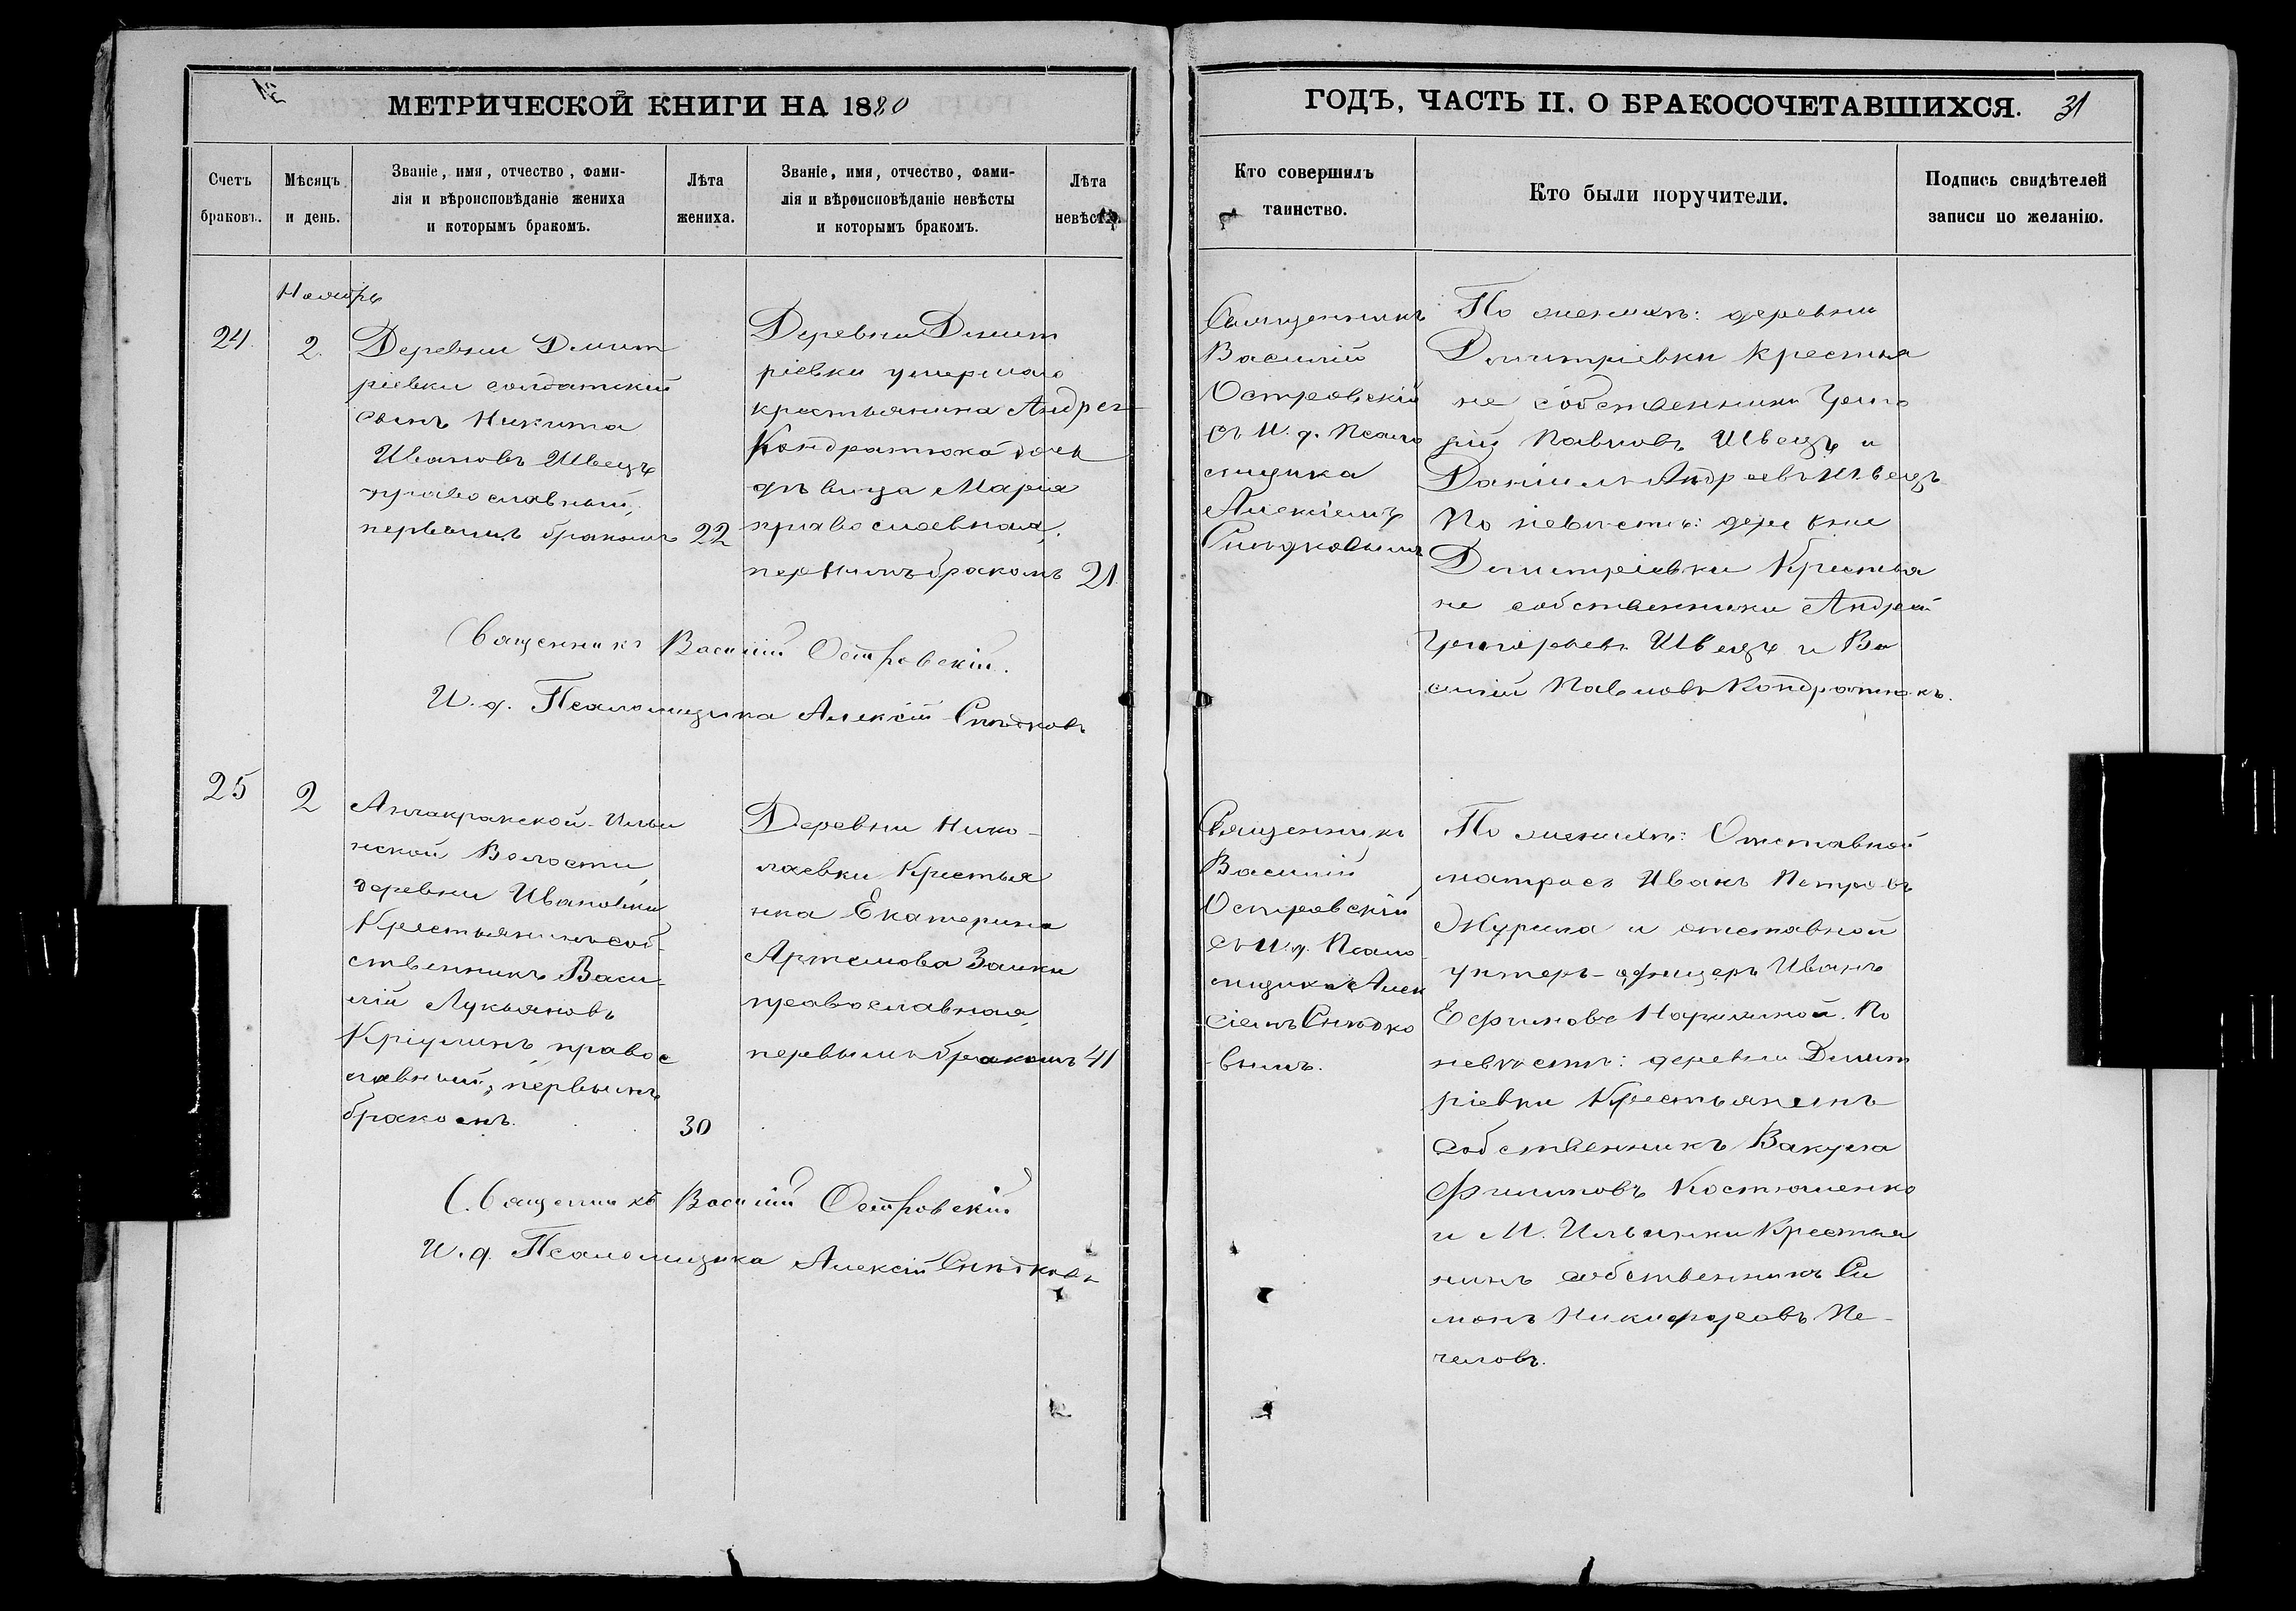 МЕТРИЧЕСКОЙ КНИГИ НА 1880
ГОДЪ, ЧАСТЬ II. О БРАКОСОЧЕТАВШИХСЯ. 31
Счетъ
браковъ.
Мѣсяцъ
и день.
Званіе, имя, отчество, фами-
лія и вѣроисповѣданіе жениха
и которымъ бракомъ.
Лѣта
жениха.
Званіе, имя, отчество, фами-
лія и вѣроисповѣданіе невѣсты
и которымъ бракомъ.
Лѣта
невѣсты.
Кто совершилъ
таинство.
Кто были поручители.
Подпись свидѣтелей
записи по желанію.
Ноябрь
24.
2.
Деревни Дмит
ріевки солдатскій
сынъ Никита
Ивановъ Швецъ
православный,
первымъ бракомъ
22
Деревни Дмит
ріевки умершаго
крестьянина Андрея
Кондратюка дочь
дѣвица Марія
православная,
первымъ бракомъ
21.
Священникъ
Василій
Островскій
съ И. д. Псало
мщика
Алексіемъ
Снѣдковымъ
По женихѣ: деревни
Дмитріевки крестья
не собственники Григо
рій Павловъ Швецъ и
Даніилъ Андреевъ Швецъ
По невѣстѣ: деревни
Дмитріевки Крестья
не собственники Андрей
Григорьевъ Швецъ и Ва
силій Павловъ Кондратюкъ.
Священникъ Василій Островскій.
И. д. Псаломщика Алексій Снѣдковъ
25
2
Анчакракской-Ильи
нской Волости,
деревни Ивановки
Крестьянинъ соб-
ственникъ Васи-
лій Лукьяновъ
Кріулинъ, правос
лавный, первымъ
бракомъ.
30
Деревни Нико-
лаевки Крестья
нка Екатерина
Артемова Заики
православная,
первымъ бракомъ
41
Священникъ
Василій
Островскій
съ И. д. Псало
мщика Алек
сіемъ Снѣдко
-вымъ.
По женихѣ: Отставной
матросъ Иванъ Петровъ
Журила и отставной
унтеръ-офицеръ Иванъ
Ефимовъ Нарижной. По
невѣстѣ: деревни Дмит
ріевки Крестьянинъ
собственникъ Вакула
Филиповъ Костюченко
и М. Ильинки Крестья
нинъ собственникъ Си
монъ Никифоровъ Пе-
человъ.
Священникъ Василій Островскій
И. д. Псаломщика Алексій Снѣдковъ